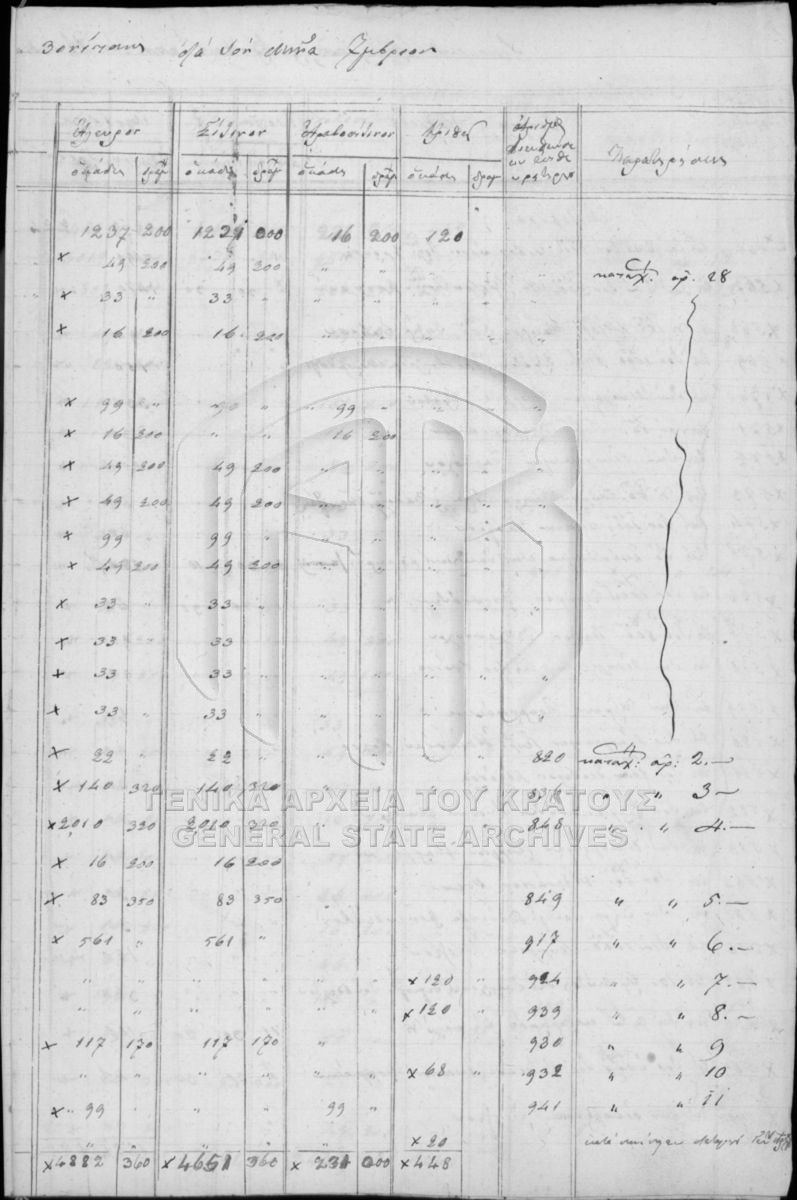 διὰ τὸν μῆνα
Ἄλευρον Σίτινον Ἀραβοσίτινον Κριθὴ Παρατηρήσεις
ὀκάδες δράμ ὀκάδες δράμ ὀκάδες δράμ ὀκάδες δραμ
1237 200 1221 000 16 200 120
× 49 200 49 200 " " " " καταχ: ἀρ. 28
× 33 " 33 " " " " "
× 16 200 16 200 " " " "
× 99 " " " 99 " " "
× 16 200 " " 16 200
× 49 200 49 200 " " " "
× 49 200 49 200 " " " "
× 99 99 " " " "
× 49 200 49 200 " " " "
× 33 " 33 " " " " "
× 33 33 " " " "
× 33 33 " " " " "
× 33 " 33 " " " " "
× 22 " 22 " " " " " 820 καταχ: ἀρ: 2.—
× 140 320 140 320 " " " " 836 " " 3—
× 2010 320 2010 320 " 848 " " 4.—
× 16 200 16 200
× 83 350 83 350 849 " " 5.—
× 561 " 561 " 917 " " 6.—
" " " " " " × 120 " 924 " " 7.—
" " " " " " × 120 " 939 " " 8.—
× 117 170 117 170 " 930 " " 9
" " " " " " × 68 " 932 " " 10
× 99 " " 99 " 941 " " 11
" " " " " × 20
× 4882 360 × 4651 360 × 231 000 × 448
ΓΕΝΙΚΑ ΑΡΧΕΙΑ ΤΟΥ ΚΡΑΤΟΥΣ
GENERAL STATE ARCHIVES